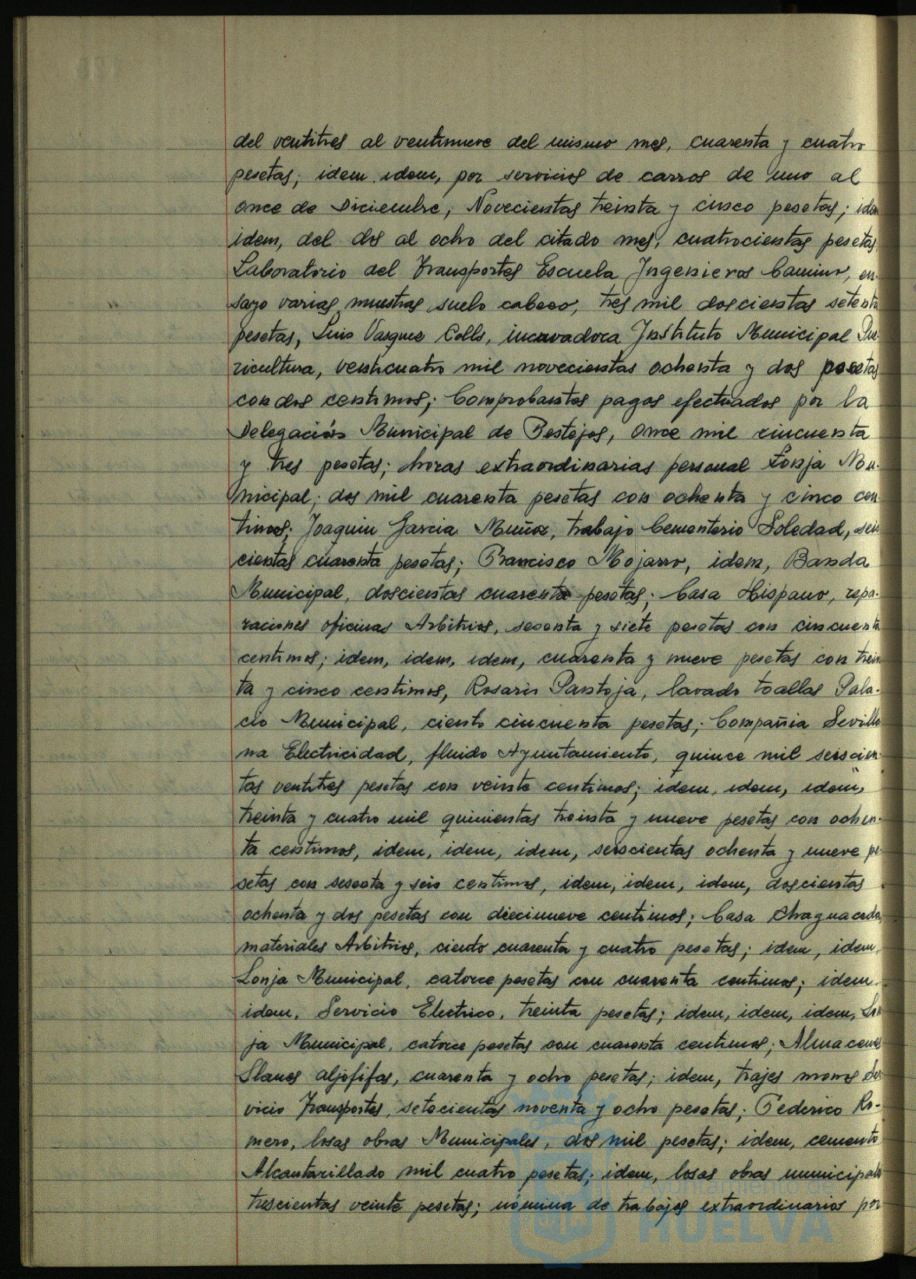 del ventitres al ventinueve del mismo mes, cuarenta y cuatro
pesetas; idem idem, por servicios de carros de uno al
once de Diciembre, Novecientas treinta y cinco pesetas; idem
idem, del dos al ocho del citado mes, cuatrocientas pesetas
Laboratorio del Transportes Escuela Ingenieros Camino, en-
sayo varias muestras suelo cabezo, tres mil doscientas setenta
pesetas, Luis Vasquez Colls, incuvadora Instituto Municipal Pue-
ricultura, venticuatro mil novecientas ochenta y dos pesetas
con dos centimos; Comprobantes pagos efectuados por la
Delegación Municipal de Festejos, once mil cincuenta
y tres pesetas; horas extraordinarias personal Lonja Mu-
nicipal; dos mil cuarenta pesetas con ochenta y cinco cen
timos; Joaquin Garcia Muñoz, trabajo Cementerio Soledad, seis
cientas cuarenta pesetas; Francisco Mojarro, idem, Banda
Municipal, doscientas cuarenta pesetas; Casa Hispano, repa-
raciones oficinas Arbitrios, sesenta y siete pesetas con cincuenta
centimos; idem, idem, idem, cuarenta y nueve pesetas con trein
ta y cinco centimos, Rosario Pantoja, lavado toallas Pala-
cio Municipal, ciento cincuenta pesetas; Compañia Sevilla
na Electricidad, fluido Ayuntamiento, quince mil seiscien
tas ventitres pesetas con veinte centimos; idem, idem, idem,
treinta y cuatro mil quinientas treinta y nueve pesetas con ochen-
ta centimos, idem, idem, idem, seiscientas ochenta y nueve pe
setas con sesenta y seis centimos, idem, idem, idem, doscientas
ochenta y dos pesetas con diecinueve centimos; Casa Chaguaceda
materiales Arbitrios, ciento cuarenta y cuatro pesetas; idem, idem,
Lonja Municipal, catorce pesetas con cuarenta centimos; idem
idem, Servicio Electrico, treinta pesetas; idem, idem, idem, Lon
ja Municipal, catorce pesetas con cuarenta centimos; Almacenes
Llanes aljofifas, cuarenta y ocho pesetas; idem, trajes monos Ser
vicio Transportes, setecientas noventa y ocho pesetas; Federico Ro-
mero, losas obras Municipales, dos mil pesetas; idem, cemento
Alcantarillado mil cuatro pesetas; idem, losas obras municipales
trescientas veinte pesetas; nómina de trabajos extraordinarios por
HUELVA